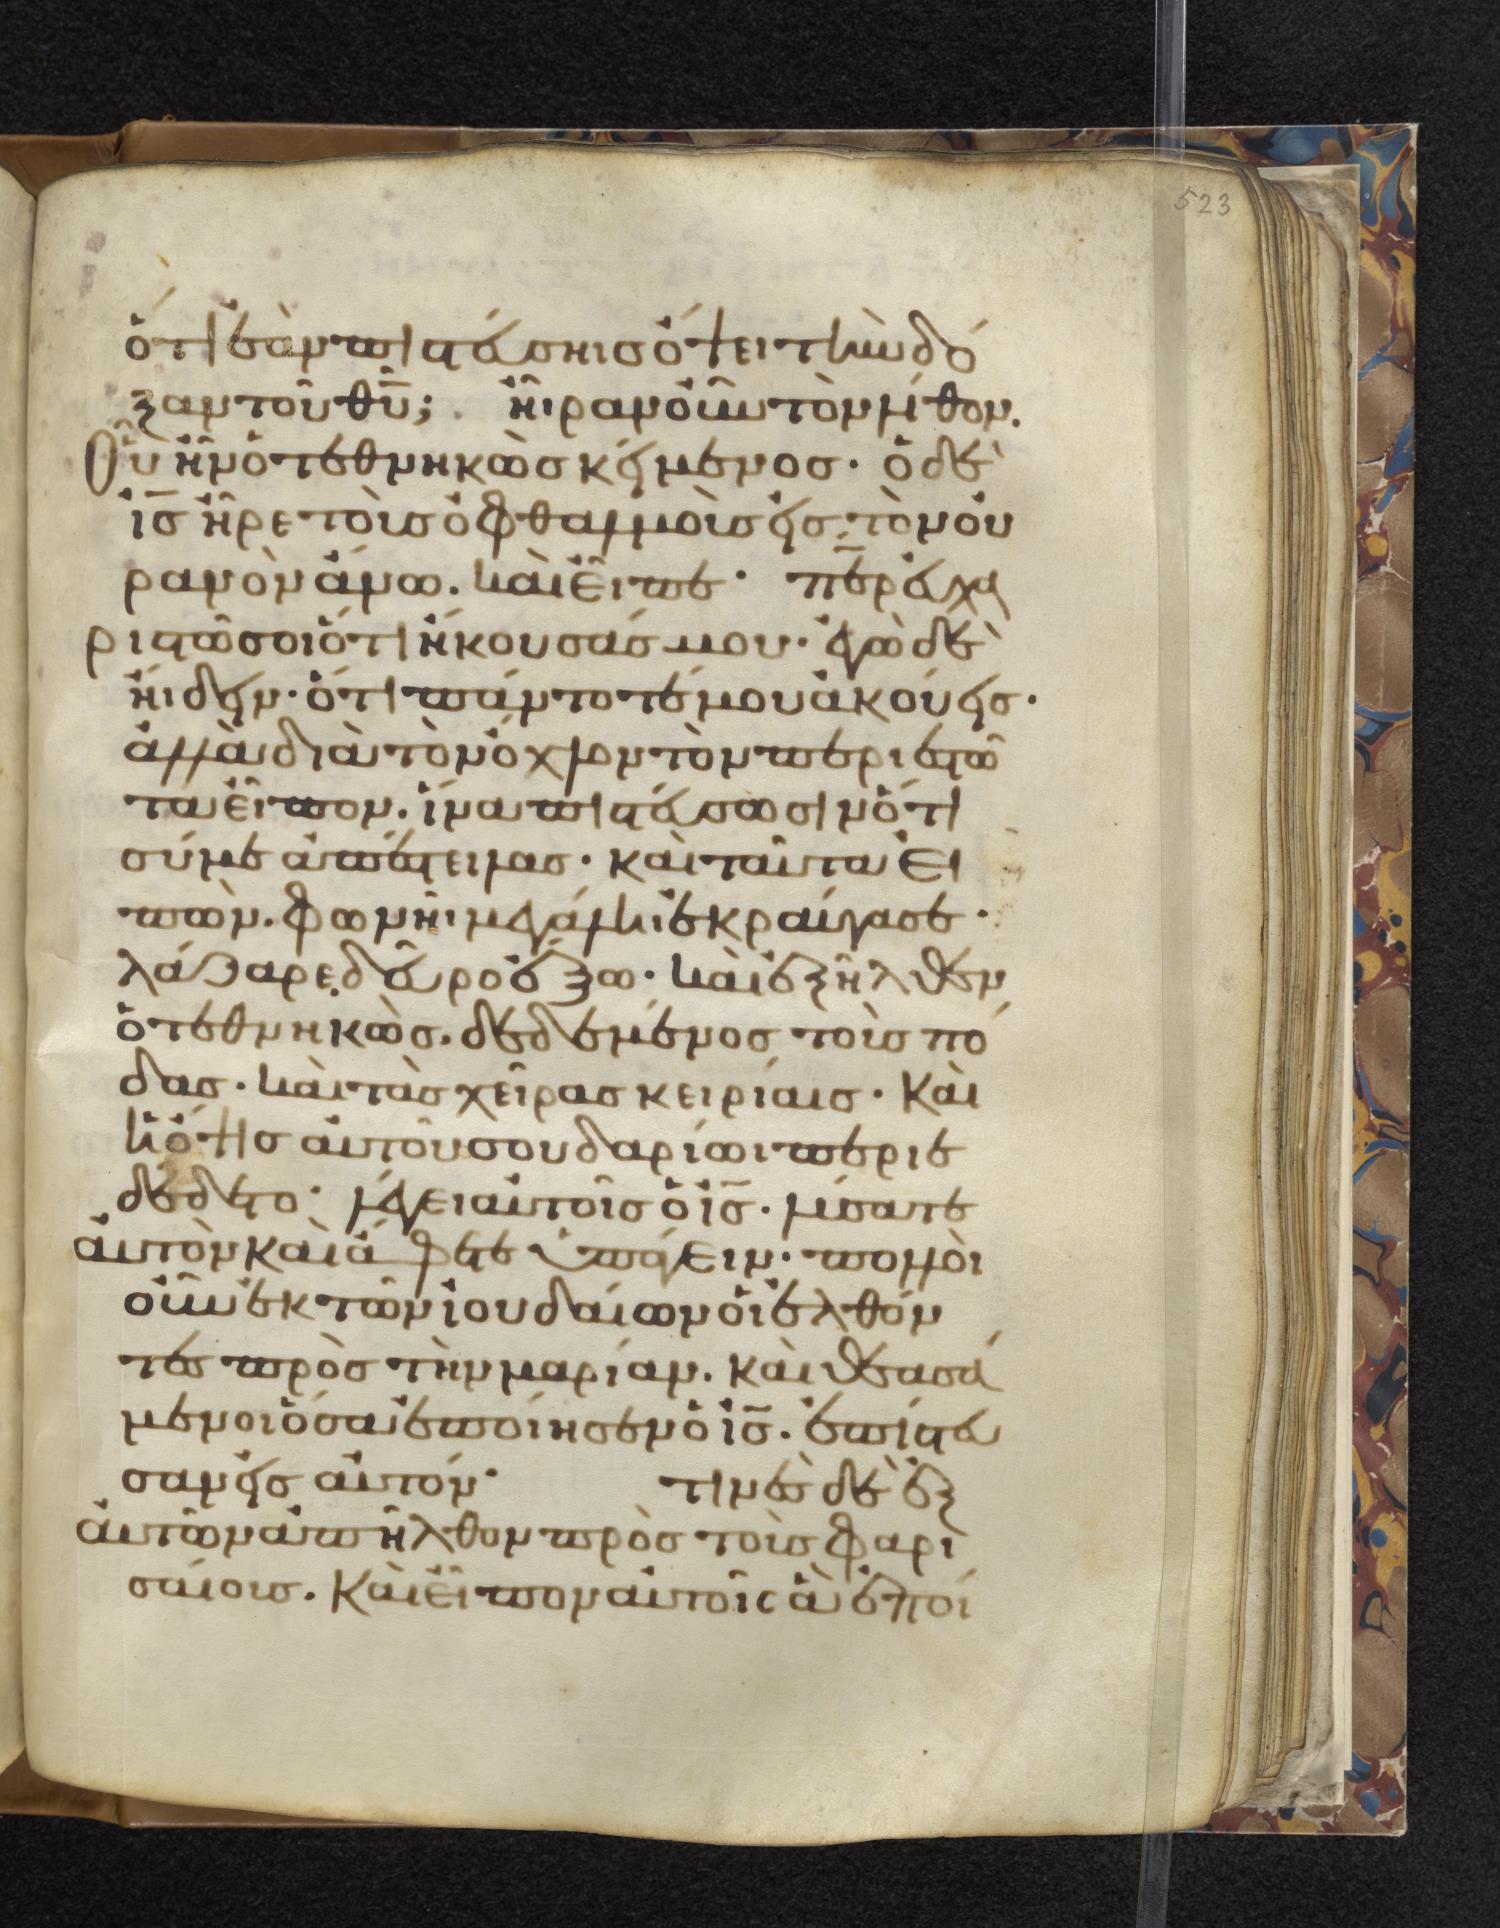 523
ὅτι ἐὰν πιστεύσηις ὄψει τὴν δό
ξαν τοῦ θῦ; ἦραν οὖν τὸν λίθον.
Οὗ ἦν ὁ τεθνηκὼς κείμενος· ὁ δὲ
ἰς ἦρε τοὺς ὀφθαλμοὺς εἰς τὸν οὐ
ρανὸν ἄνω. καὶ εἶπε· περ εὐχα
ριστῶ σοι ὅτι ἤκουσάς μου· ἐγὼ δὲ
ἤιδειν· ὅτι πάντοτέ μου ἀκούεις·
ἀλλὰ διὰ τὸν ὄχλον τὸν περιεστῶ
τα εἶπον. ἵνα πιστεύσωσιν ὅτι
σύ με ἀπέστειλας· καὶ ταῦτα εἰ
πὼν. φωνῆι μεγάληι ἐκραύγασε·
λάζαρε δεῦρο ἔξω· καὶ ἐξῆλθεν
ὁ τεθνηκὼς. δεδεμένος τοὺς πό
δας· καὶ τὰς χεῖρας κειρίαις· Καὶ
ἡ ὄψις αὐτοῦ σουδαρίωι περιε
δέδετο· λέγει αὐτοῖς ὁ ἰς· λύσατε
αὐτὸν καὶ ἄφετε ὑπάγειν· πολλοὶ
οὖν ἐκ τῶν ἰουδαίων οἱ ἐλθόν
τες πρὸς τὴν μαρίαν. καὶ θεασά
μενοι ὅσα ἐποίησεν ὁ ἰς. ἐπίστευ
σαν εἰς αὐτόν· τινὲς δὲ ἐξ
αὐτῶν ἀπῆλθον πρὸς τοὺς φαρι
σαίους. Καὶ εἶπον αὐτοῖς ἃ ἐποί